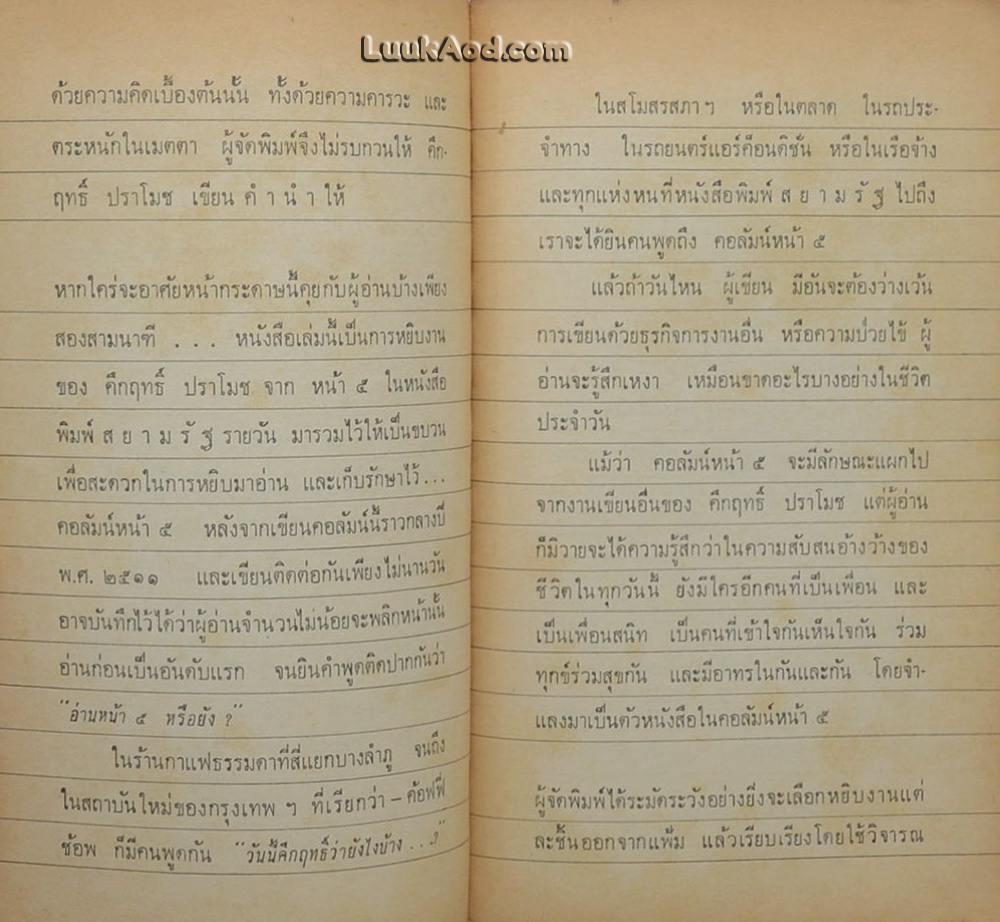 LuukAod.com
ด้วยความคิดเบื้องต้นนั้น ทั้งด้วยความคารวะ และ
ตระหนักในเมตตา ผู้จัดพิมพ์จึงไม่รบกวนให้ คึก-
ฤทธิ์ ปราโมช เขียน คำ นำ ให้
หากใคร่จะอาศัยหน้ากระดาษนี้คุยกับผู้อ่านบ้างเพียง
สองสามนาที . . . หนังสือเล่มนี้เป็นการหยิบงาน
ของ คึกฤทธิ์ ปราโมช จาก หน้า ๕ ในหนังสือ
พิมพ์ ส ย า ม รั ฐ รายวัน มารวมไว้ให้เป็นขบวน
เพื่อสะดวกในการหยิบมาอ่าน และเก็บรักษาไว้...
คอลัมน์หน้า ๕ หลังจากเขียนคอลัมน์นี้ราวกลางปี
พ.ศ. ๒๕๑๑ และเขียนติดต่อกันเพียงไม่นานวัน
อาจบันทึกไว้ได้ว่าผู้อ่านจำนวนไม่น้อยจะพลิกหน้านั้น
อ่านก่อนเป็นอันดับแรก จนยินคำพูดติดปากกันว่า
"อ่านหน้า ๕ หรือยัง ?"
ในร้านกาแฟธรรมดาที่สี่แยกบางลำภู จนถึง
ในสถาบันใหม่ของกรุงเทพ ฯ ที่เรียกว่า – ค้อฟฟี่
ช้อพ ก็มีคนพูดกัน "วันนี้คึกฤทธิ์ว่ายังไงบ้าง . . .?"
ในสโมสรสภา ฯ หรือในตลาด ในรถประ-
จำทาง ในรถยนตร์แอร์ค็อนดิชั่น หรือในเรือจ้าง
และทุกแห่งหนที่หนังสือพิมพ์ ส ย า ม รั ฐ ไปถึง
เราจะได้ยินคนพูดถึง คอลัมน์หน้า ๕
แล้วถ้าวันไหน ผู้เขียน มีอันจะต้องว่างเว้น
การเขียนด้วยธุรกิจการงานอื่น หรือความป่วยไข้ ผู้
อ่านจะรู้สึกเหงา เหมือนขาดอะไรบางอย่างในชีวิต
ประจำวัน
แม้ว่า คอลัมน์หน้า ๕ จะมีลักษณะแผกไป
จากงานเขียนอื่นของ คึกฤทธิ์ ปราโมช แต่ผู้อ่าน
ก็มิวายจะได้ความรู้สึกว่าในความสับสนอ้างว้างของ
ชีวิตในทุกวันนี้ ยังมีใครอีกคนที่เป็นเพื่อน และ
เป็นเพื่อนสนิท เป็นคนที่เข้าใจกันเห็นใจกัน ร่วม
ทุกข์ร่วมสุขกัน และมีอาทรในกันและกัน โดยจำ-
แลงมาเป็นตัวหนังสือในคอลัมน์หน้า ๕
ผู้จัดพิมพ์ได้ระมัดระวังอย่างยิ่งจะเลือกหยิบงานแต่
ละชิ้นออกจากแฟ้ม แล้วเรียบเรียงโดยใช้วิจารณ